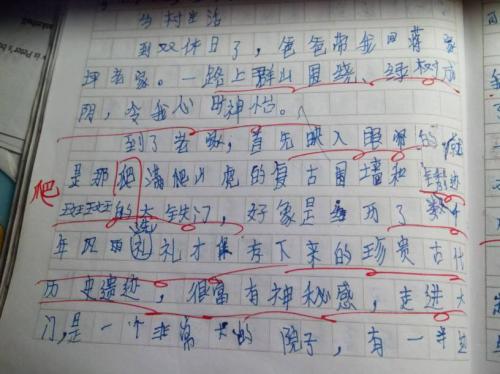 乡村生活
到双休日了，爸爸带我回蒋家
坪老家。一路上群山围绕、绿树成
阴，令我心旷神怡。
到了老家，首先映入眼帘的
是那爬满爬山虎的复古围墙和锈迹
爬
斑斑的大铁门，好象是经历了数千
年风雨洗礼才保存下来的珍贵古代
历史遗迹，很富有神秘感，走进大
门，是一个非常大的院子，有一半